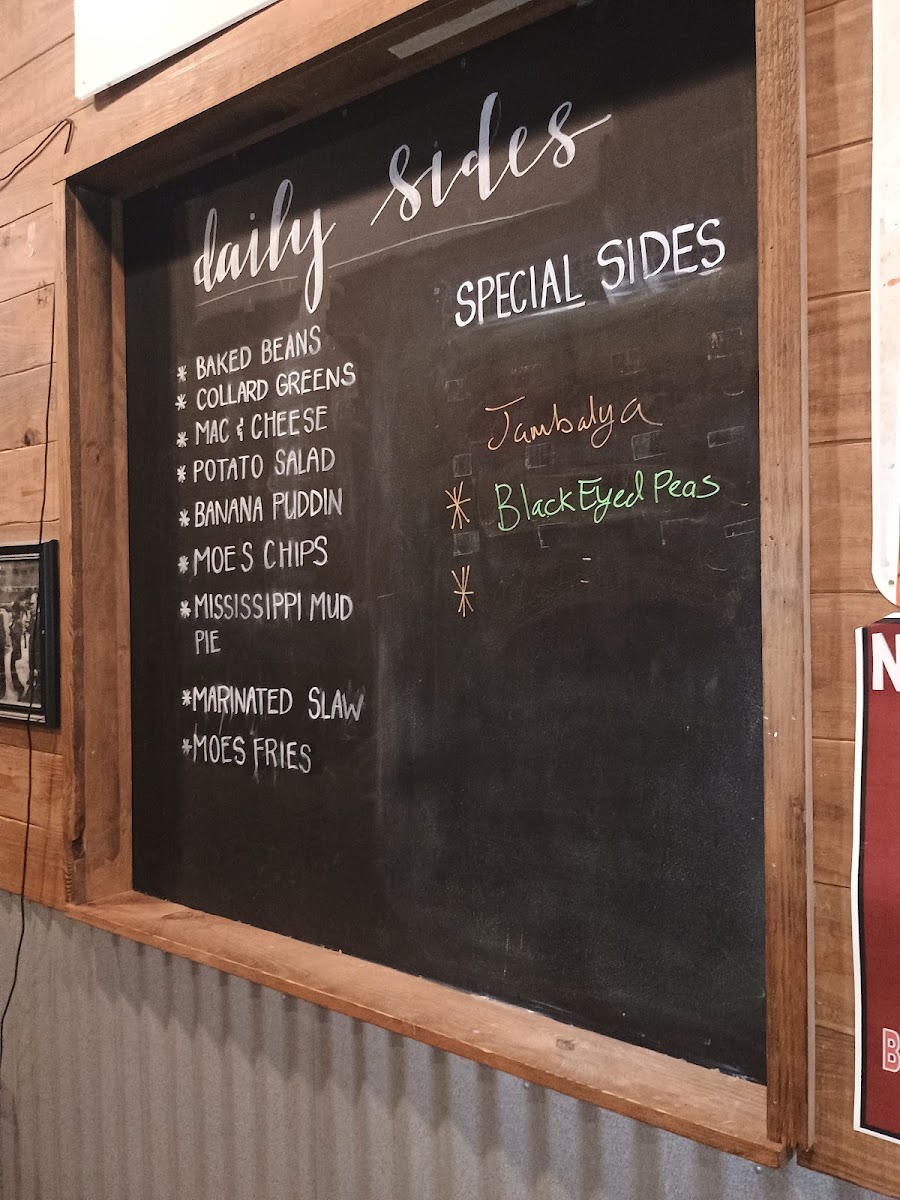 daily sides
* BAKED BEANS
* COLLARD GREENS
* MAC & CHEESE
* POTATO SALAD
* BANANA PUDDIN
* MOE S CHIPS
* MISSISSIPPI MUD
PIE
* MARINATED SLAW
* MOES FRIES
SPECIAL SIDES
Jambalya
* Black Eyed Peas
*
N
B